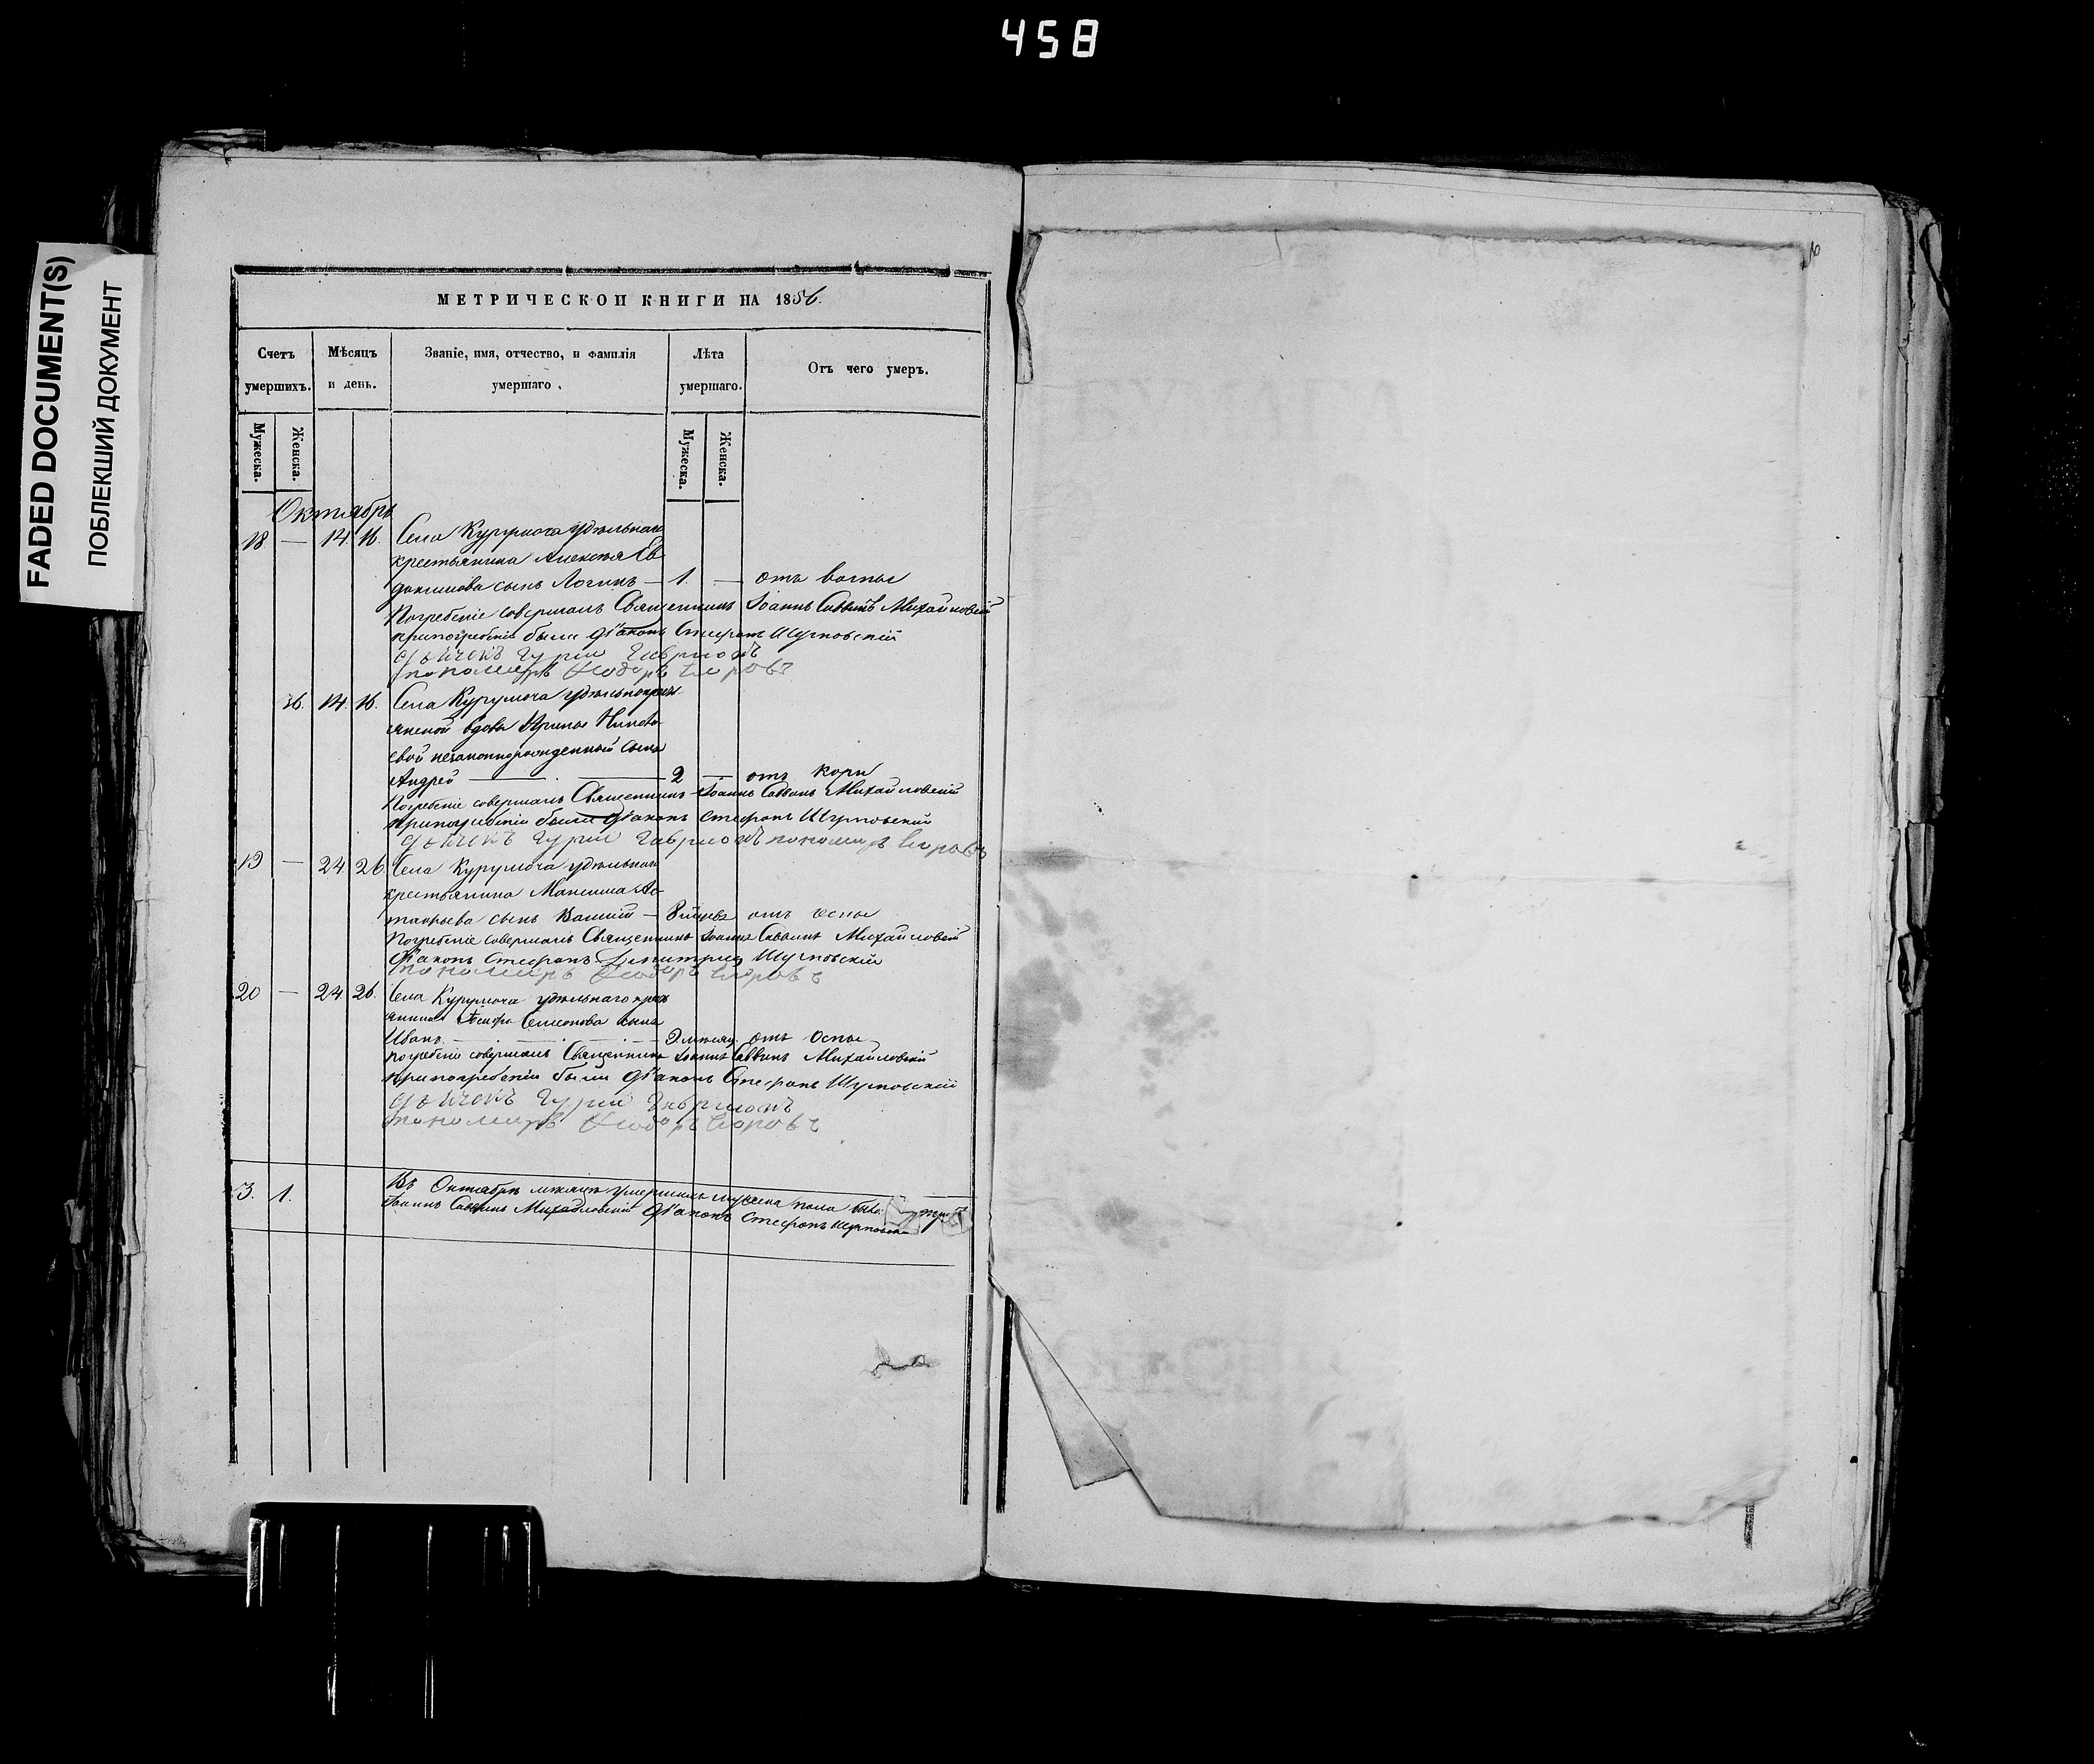 458
FADED DOCUMENT(S)
ПОБЛЕКШИЙ ДОКУМЕНТ
МЕТРИЧЕСКОИ КНИГИ НА 1856.
Счетъ умершихъ.
Мѣсяцъ и день.
Званіе, имя, отчество, и фамилія умершаго.
Лѣта умершаго.
Отъ чего умеръ.
Мужеска.
Женска.
Мужеска.
Женска.
Октябрь
18 — 14. 16. Села Курумоча удѣльнаго
крестьянина Алексѣя Ев
докимова сынъ Логинъ — 1. —
Погребеніе совершалъ Священникъ Іоаннъ Саввинъ Михайловскій
при погребеніи были діаконъ Стефанъ Шумовскій
дьячекъ Гурій
пономарь Федоръ Егоровъ
16. 14. 16. Села Курумоча удѣльной крест
янской вдовы Ирины
евой незаконнорожденный сынъ
Андрей — 2 — отъ кори
Погребеніе совершалъ Священникъ Іоаннъ Саввинъ Михайловскій
при погребеніи были діаконъ Стефанъ Шумовскій
дьячекъ Гурій пономарь Егоровъ
19 — 24 26 Села Курумоча удѣльнаго
крестьянина Максима Ас
тафьева сынъ — отъ оспы
Погребеніе совершалъ Священникъ Іоаннъ Саввинъ Михайловскій
діаконъ Стефанъ Димитріевъ Шумовскій
пономарь Федоръ Егоровъ
20 — 24. 26. Села Курумоча удѣльнаго крест
янина Семенова сынъ
Иванъ — отъ Оспы
погребеніе совершалъ Священникъ Іоаннъ Саввинъ Михайловскій
при погребеніи были діаконъ Стефанъ Шумовскій
дьячекъ Гурій
пономарь Федоръ Егоровъ
3. 1. Въ Октябрѣ мѣсяцѣ умершихъ мужеска пола
Іоаннъ Саввинъ Михайловскій діаконъ Стефанъ Шумовскій